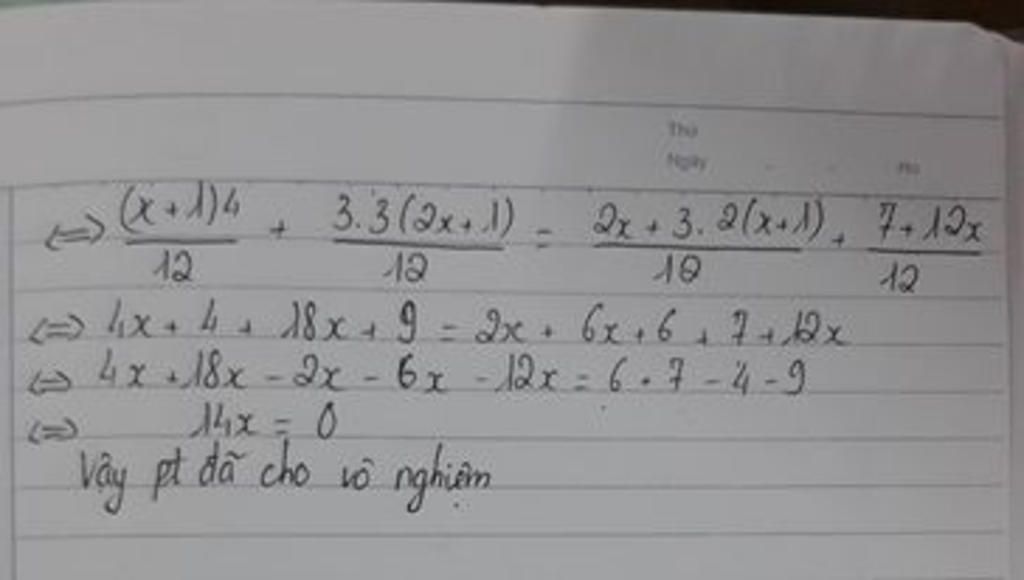 Thứ
Ngày No
⇔ (x+1)4/12 + 3.3(2x+1)/12 = 2x+3.2(x+1)/12 + 7+12x/12
⇔ 4x + 4 + 18x + 9 = 2x + 6x + 6 + 7 + 12x
⇔ 4x + 18x - 2x - 6x - 12x = 6 + 7 - 4 - 9
⇔ 14x = 0
Vậy pt đã cho vô nghiệm